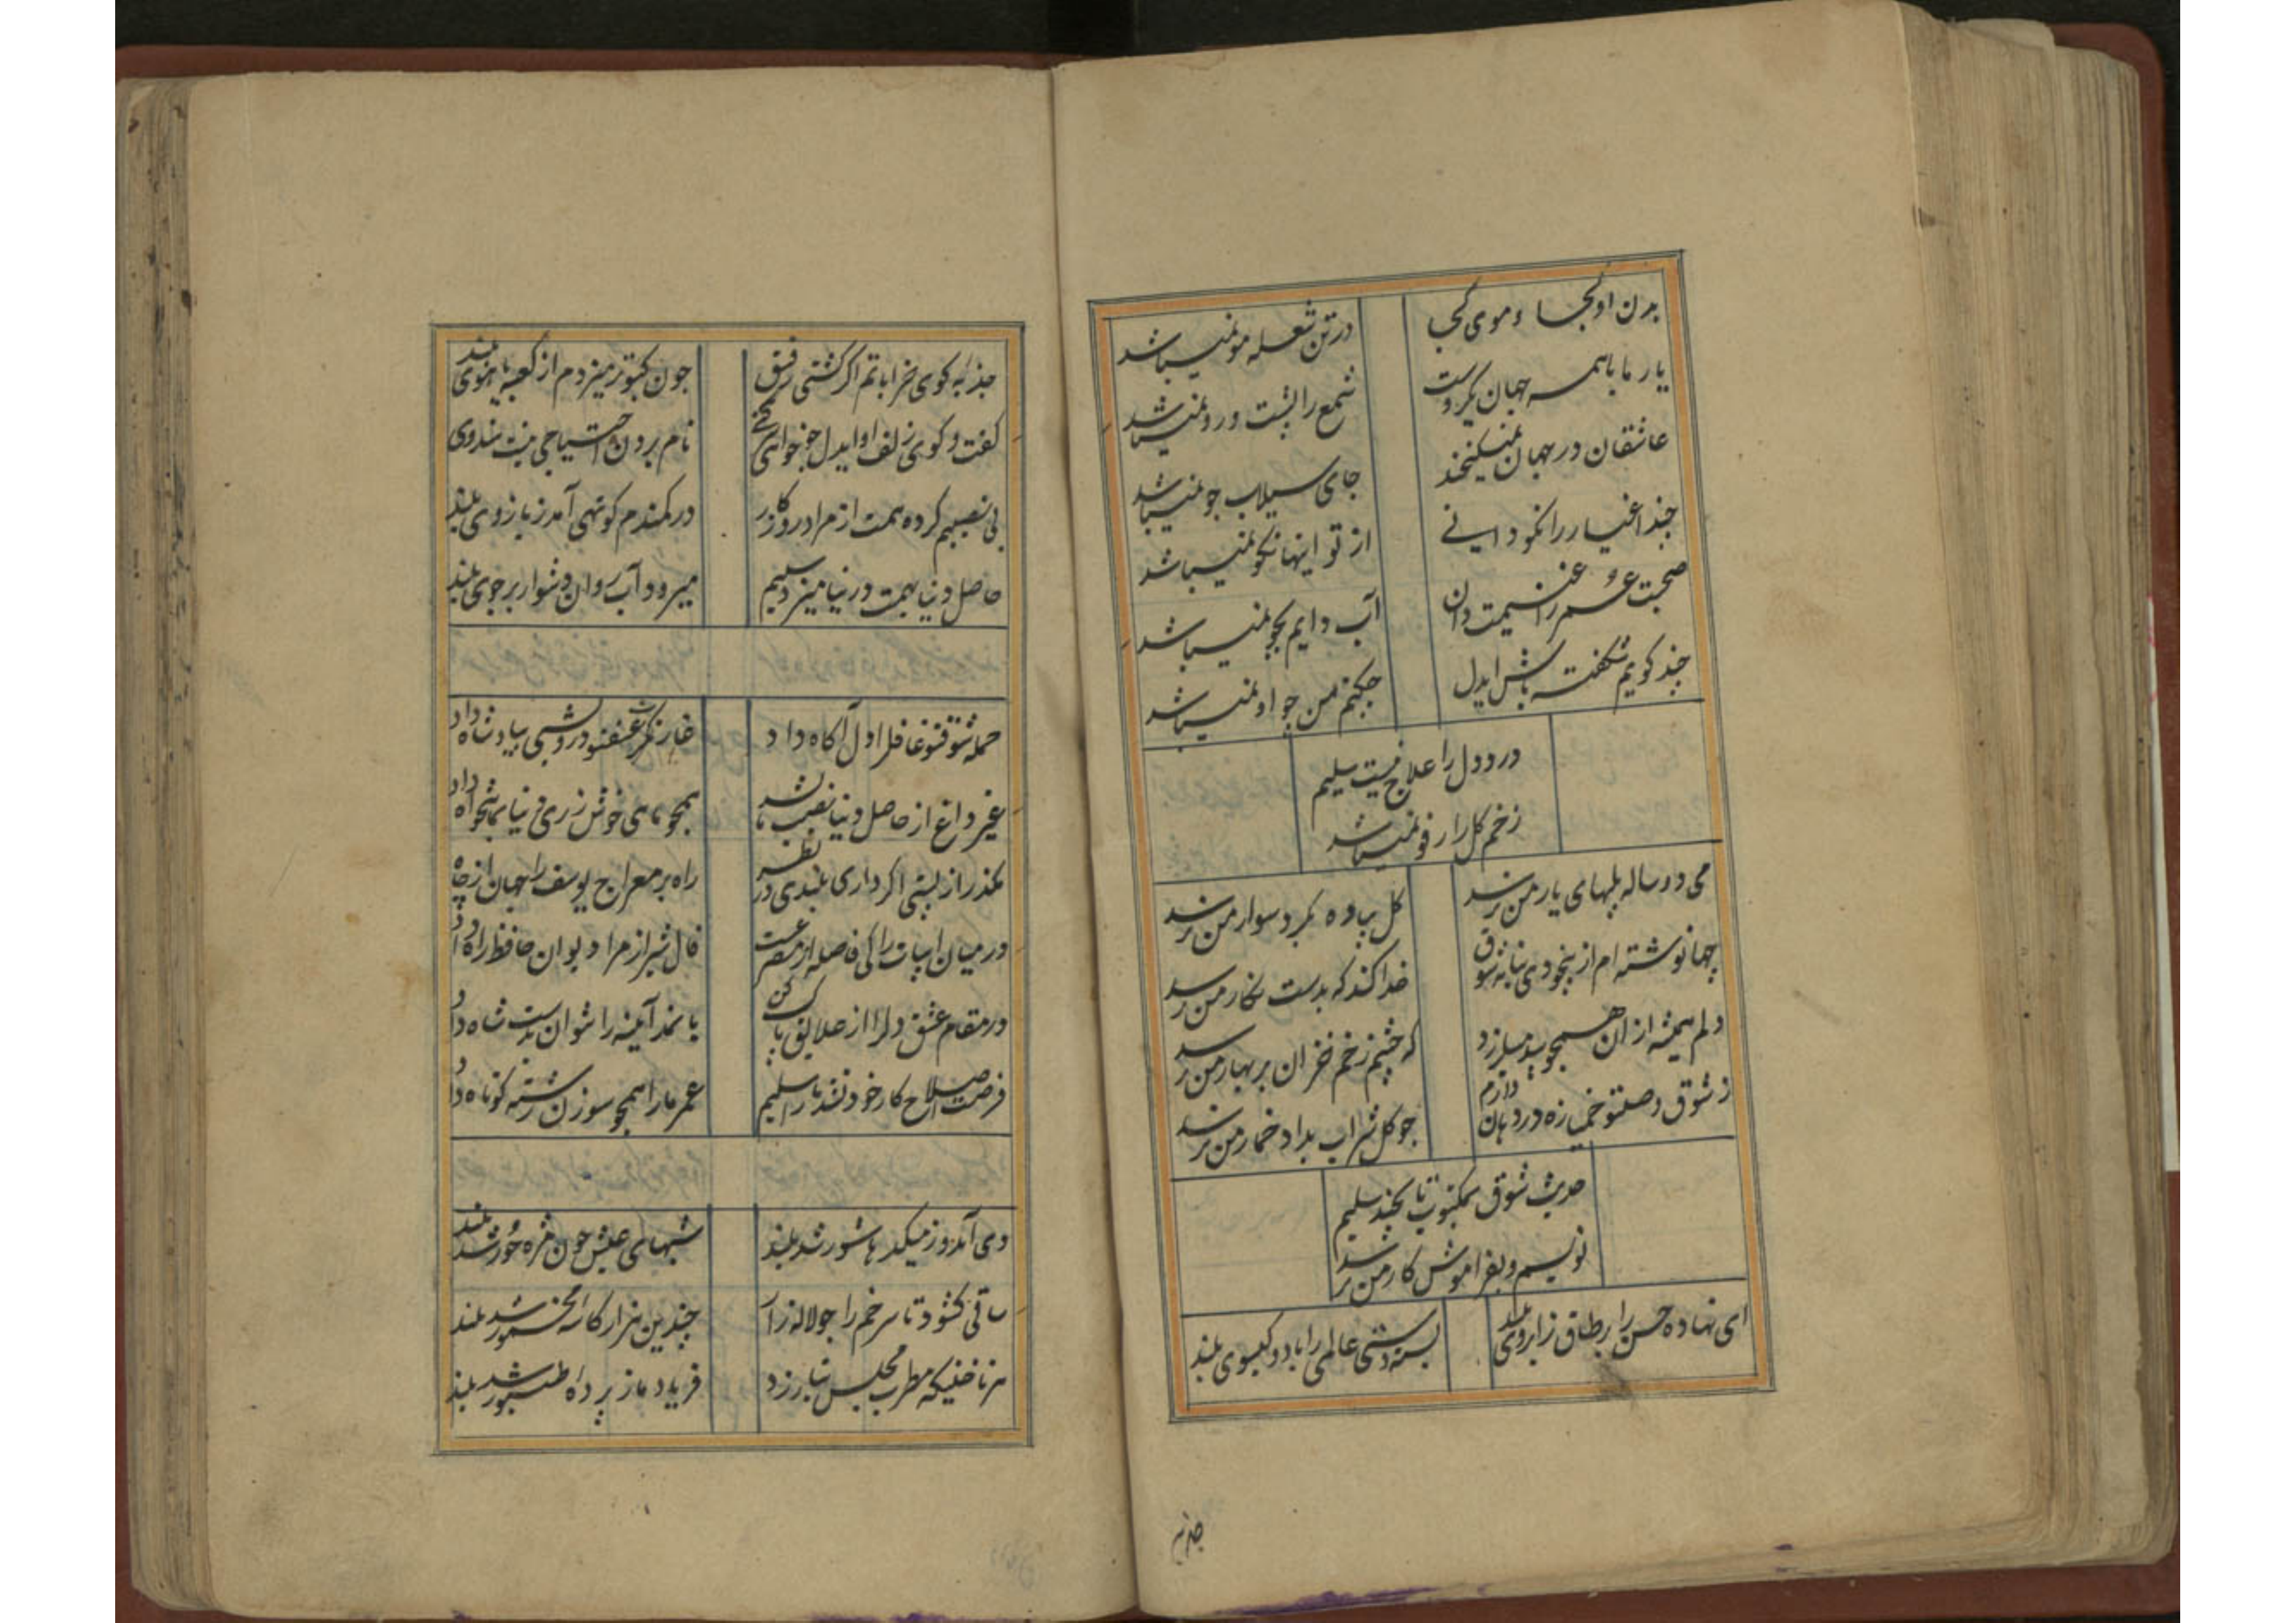 بدن او کجا و موی کجا
در تن شعله مو نمیباشد
یار ما با همه جهان یکروست
شمع را پشت و رو نمیباشد
عاشقان در جهان نمیکنجند
جای سیلاب جو نمیباشد
چند اغیار را نکو دانی
از تو اینها نکو نمیباشد
صحبت عمر را غنیمت دان
آب دایم بجو نمیباشد
چند کویم شکفته باش ایدل
چکنم من چو او نمیباشد
درد دل را علاج نیست سلیم
زخم کل را رفو نمیباشد
می دو ساله بلبهای یار من برسد
کل پیاده بکرد سوار من نرسد
چها نوشته ام از بیخودی بنامه شوق
خدا کند که بدست نکار من نرسد
دلم همیشه از ان همچو بید میلرزد
که چشم زخم خزان بر بهار من نرسد
ز شوق وصلتو خمیازه در دهان دارم
چو کل شراب بداد خمار من نرسد
حدیث شوق بمکتوب تا بچند سلیم
نویسم و بفراموش کار من نرسد
ای نهاده حسن را بر طاق ز ابروی بلند
بسته دستی عالمی را با دو کیسوی بلند
جذبه
جذبه کوی خراباتم اکر کشتی رفیق
چون کبوتر میزدم از کعبه یاهوی بلند
کفت و کوی زلف او ایدل چو خوانی
نام بردن احتیاجی نیست هندوی
بی نصیبم کرده همت از مراد روزکار
در کمندم کوتهی آمد ز بازوی بلند
حاصل دنیا بهمت در نیامیزد سلیم
میرود آب روان دشوار بر جوی بلند
جمله شوقتو غافل را دل آکاه داد
غیر داغ از حاصل دنیا نصیب ما نشد
بکذر از پستی اکر داری بلندی در نظر
راه بر معراج یوسف را جهان از چاه
در میان ابیات را کی فاصله از مصرعست
فال شیراز مرا دیوان حافظ راه داد
در مقام عشق دلرا از علایق پاک کن
با نمد آیینه را نتوان بدست شاه داد
فرصت اصلاح کار خود نشد ما را سلیم
عمر ما را همچو سوزن رشته کوتاه داد
دی آمد و ز میکدها شور شد بلند
شبهای عیش چون مژه حور شد بلند
ساقی کشود تا سر خم را چو لاله زار
چندین هزار کاسه مخمور شد بلند
هر ناخنیکه مطرب مجلس بتار زد
فریاد ما ز پرده طنبور شد بلند